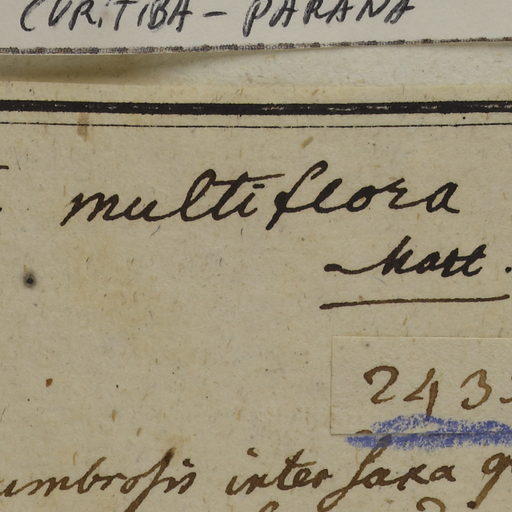 CURITIBA - PARANA
multiflora
Mart.
243
umbrosis inter saxa